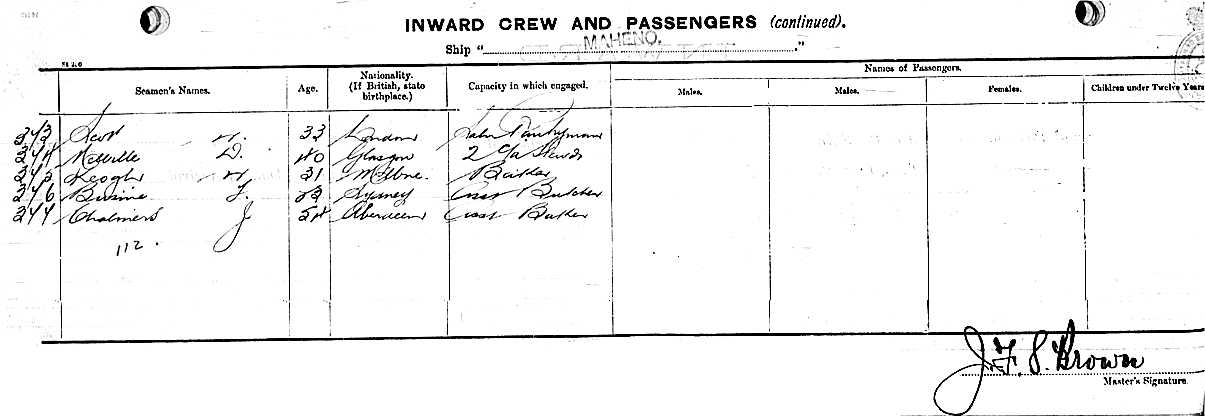 INWARD CREW AND PASSENGERS (continued).
Ship " MAHENO. ."
Seamen's Names. Age. Nationality. (If British, state birthplace.) Capacity in which engaged. Names of Passengers.
Males. Males. Females. Children under Twelve Years
33 London Pantryman
Melville D. 40 Glasgow 2 Cla Stewd
Keogh 31 Melbne.
246 F. Sydney Asst Butcher
Chalmers J 54 Aberdeen Asst
112.
J. F. S. Brown
Master's Signature.